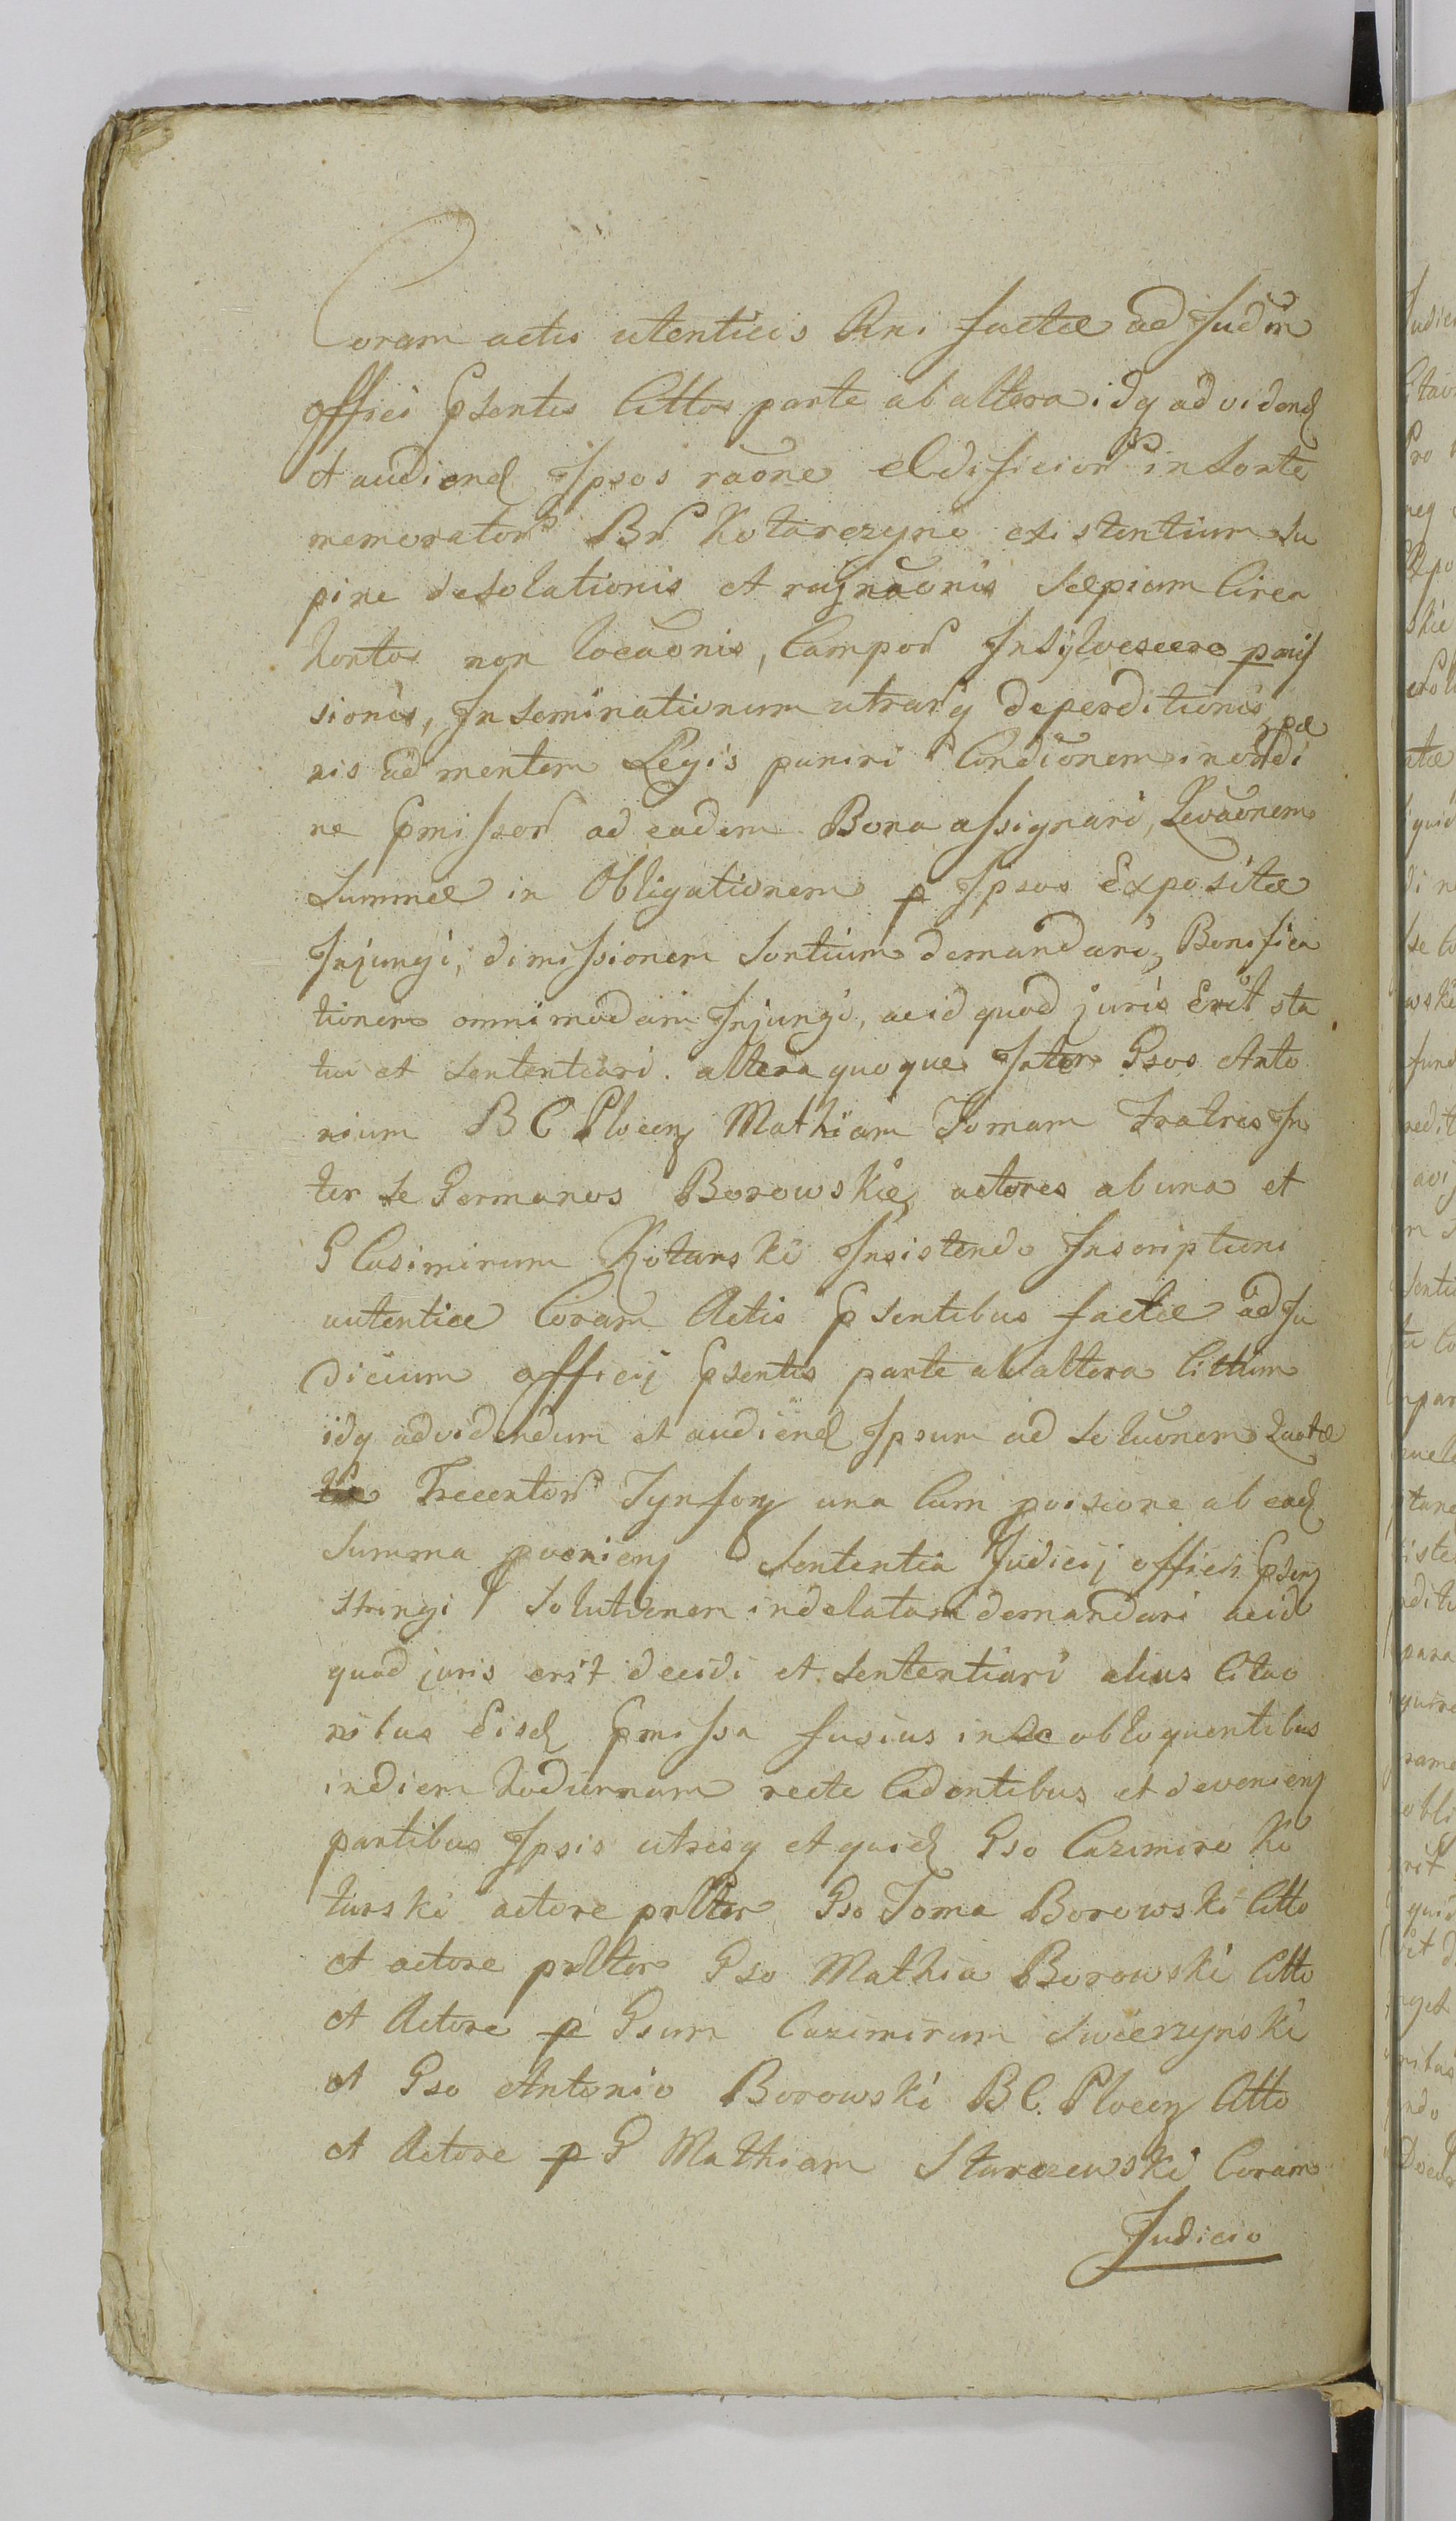 Coram actis utenticis Rni factæ ad Judm
officii Pßentis Cittos parte ab altera idq ad vidend
et audiend Ipsos raone Ædificior in Sorte
memorator Br Kotarczyno existentium su
pine desolationis et rujnaonis Sæpium Circa
hortos non locaonis, Campor Insylvescere pmis
sionis, Inseminationum utrarq deperditionis, pæ
nis ad mentem Legis puniri Condionem in ordi
ne Pmissor ad eadem Bona assignari, Levaonem
Summæ in Obligationem p Ipsos Expositæ
Injungi, dimissionem Sortium demandari, Bonifica
tionem omnimodam Injungi, acid quod juris Erit sta
tui et Sententiari. altera quoque Inter Gsos Anto
nium B C Plocen Mathiam Tomam Fratres In
ter se Germanos Borowskie actores ab una et
G Casimirum Kotarski Insistendo Inscriptioni
autenticæ Coram Actis Psentibus factæ ad Ju
dicium officij Psentis parte ab altera Cittum
idq ad videndum et audiend Ipsum ad Soluonem Quotæ
Trecentor Tynfon una Cum poisione ab ead
Summa pvenien Sententia Judicij officii Psen
stringi Solutionem indelatam demandari acid
quod juris erit decidi et Sententiari alias Citao
nibus Eisd Pmissa fusius in se obloquentibus
in diem hodiernam recte Cadentibus et devenien
partibus Ipsis utrisq et quid Gso Cazimiro Ko
tarski actore prlter Gso Toma Borowski Citto
et actore prlter Gso Mathia Borowski Citto
et Actore p Gsum Cazimirum Swierzynski
et Gso Antonio Borowski B C. Plocen Citto
et Actore p G Mathiam Starczewski Coram
Judicio